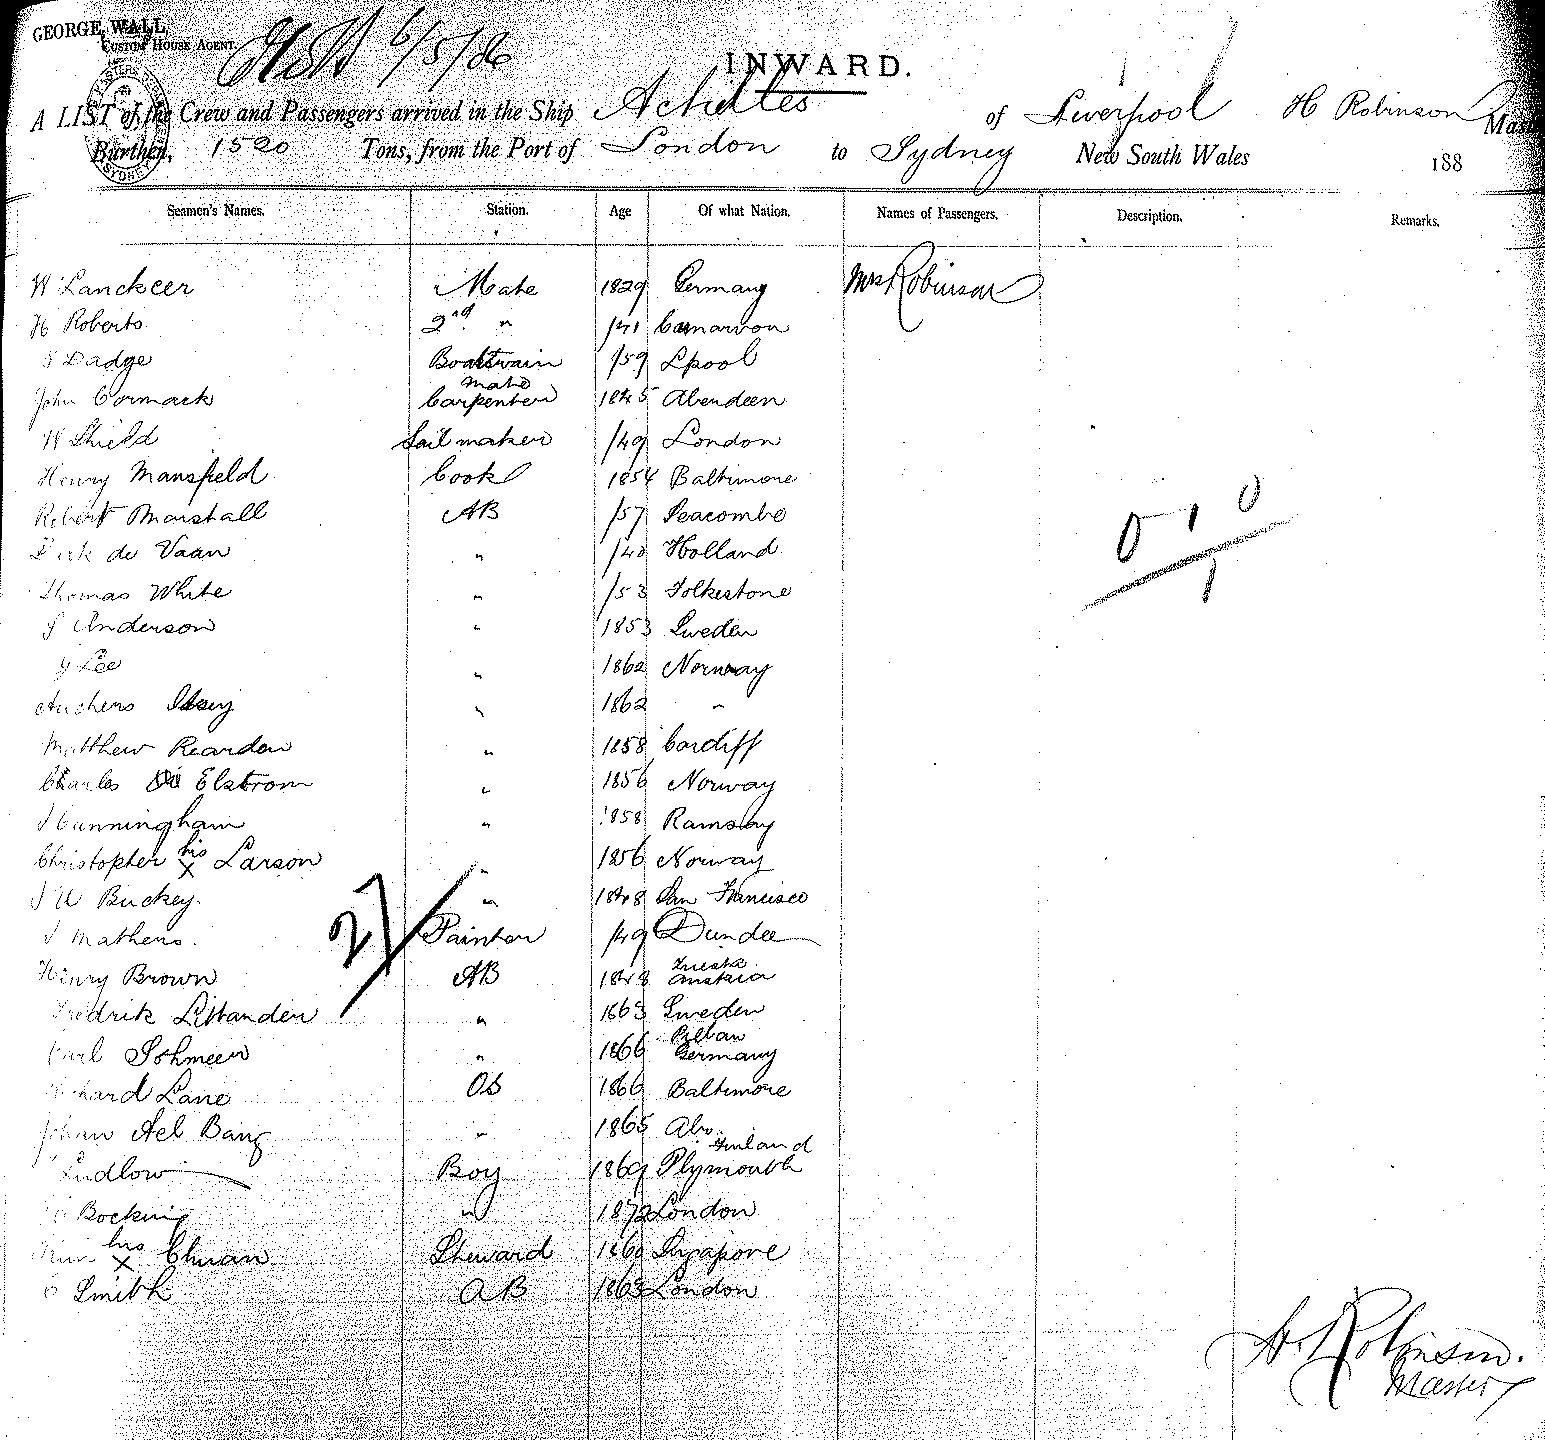 GEORGE WALL,
CUSTOM HOUSE AGENT.
6/5/86
INWARD.
A LIST of the Crew and Passengers arrived in the Ship Achilles of Liverpool H Robinson Mas
Burthen, 1520 Tons, from the Port of London to Sydney New South Wales 188
Seamen's Names. Station. Age Of what Nation. Names of Passengers. Description. Remarks.
W Lanckeer Mate 1829 Germany Mrs Robinson
H Roberts 2nd " /41 Carnarvon
Dadge Boatswain /59 Lpool
John Cormack Mate Carpenter 1845 Aberdeen
W Shield Sailmaker /49 London
Henry Mansfield Cook 1854 Baltimore
Robert Marshall AB /57 Seacombe
Dirk de Vaan " /40 Holland
Thomas White " /53 Folkestone
Anderson " 1853 Sweden
Lee " 1862 Norway
" 1862 "
Matthew Reardon " 1858 Cardiff
Charles Elstrom " 1856 Norway
J Cunningham " 1858 Ramsay
Christopher his x Larson " 1856 Norway
J Buckey. " 1848 San Francisco
J Mathens. Painter /49 Dundee
27
Henry Brown AB 1848 Trieste Austria
Fredrik " 1863 Sweden
Carl " 1866 Pillau Germany
Richard Lane OS 1866 Baltimore
Johan Ael Bang " 1865 Abo Finland
Ludlow Boy 1869 Plymouth
Bocking " 1872 London
his x Chuan Steward 1860 Singapore
Smith AB 1863 London
H. Robinson.
Master